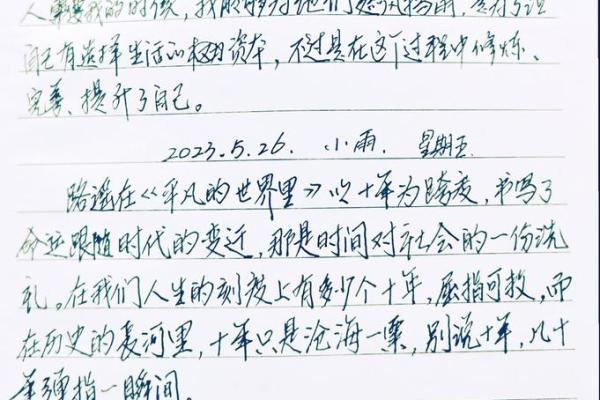 人需要我的时候，我能够为他们遮风挡雨，是为了让
自己有选择生活的权利资本，不过是在这个过程中修炼、
完善、提升了自己。
2023.5.26. 小雨. 星期五.
路遥在《平凡的世界里》以十年为跨度，书写了
命运跟随时代的变迁，那是时间对社会的一份洗
礼。在我们人生的刻度上有多少个十年，屈指可数，而
在历史的长河里，十年只是沧海一粟，别说十年，几十
年弹指一瞬间。